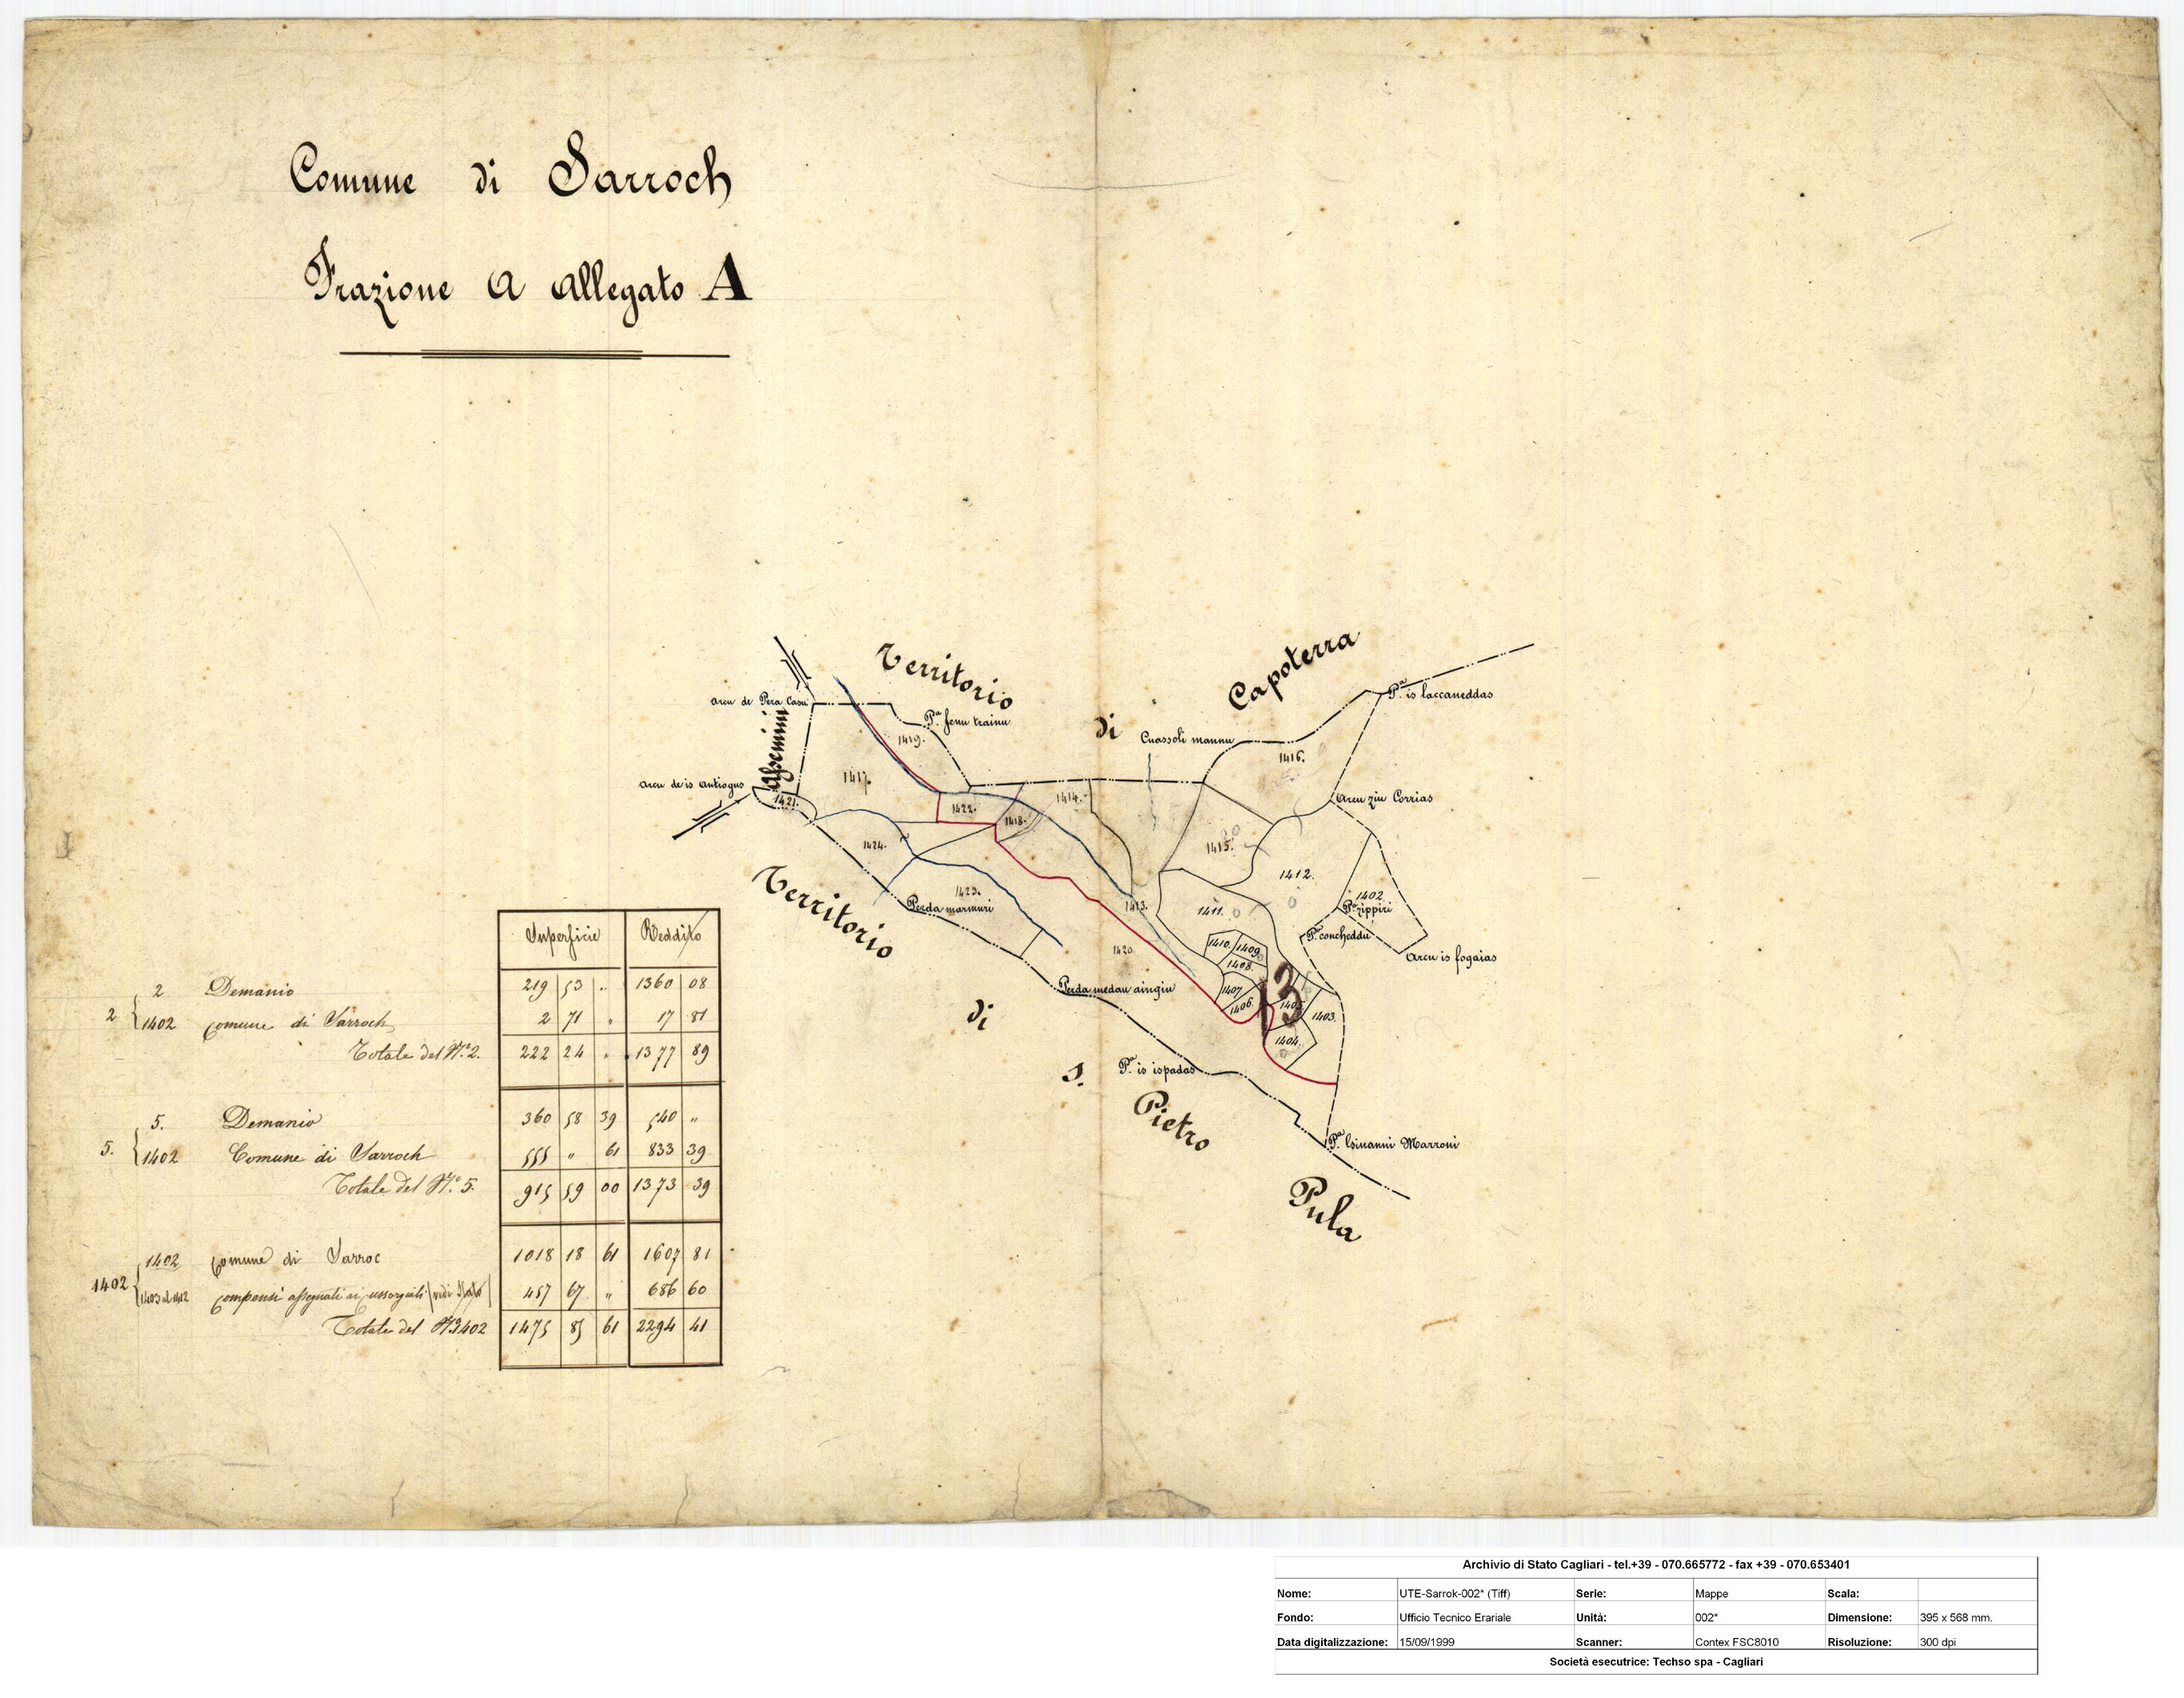 Comune di Sarroch
Frazione A Allegato A
Territorio di Capoterra
Arcu de Pera Casu
Pta fenu trainu
Cuassoli mannu
Pta is laccaneddas
Assemini
Arcu de is Antiogus
Arcu ziu Corrias
1419.
1417.
1421.
1422.
1418.
1414.
1416.
1424.
1415.
1412.
1402
Pta zippiri
1423.
Perda marmuri
1413.
1411.
Pta concheddu
Arcu is fogaias
1410.
1409.
1408.
1420
1407
1406.
1405
1403.
1404.
13
Perda medau aingiu
Pta is ispadas
Pta Giuanni Marroni
Territorio di S. Pietro Pula
Superficie Reddito
2 2 Demanio 219 53 " 1360 08
1402 Comune di Sarroch 2 71 " 17 81
Totale del No. 2. 222 24 " 1377 89
5. 5. Demanio 360 58 39 540 "
1402 Comune di Sarroch 555 " 61 833 39
Totale del No. 5. 915 59 00 1373 39
1402 1402 Comune di Sarroc 1018 18 61 1607 81
1403 al 1412 Compensi assegnati ai cussorgiali 457 67 " 686 60
Totale del No. 1402 1475 85 61 2294 41
Archivio di Stato Cagliari - tel.+39 - 070.665772 - fax +39 - 070.653401
Nome: UTE-Sarrok-002* (Tiff) Serie: Mappe Scala:
Fondo: Ufficio Tecnico Erariale Unità: 002* Dimensione: 395 x 568 mm.
Data digitalizzazione: 15/09/1999 Scanner: Contex FSC8010 Risoluzione: 300 dpi
Società esecutrice: Techso spa - Cagliari